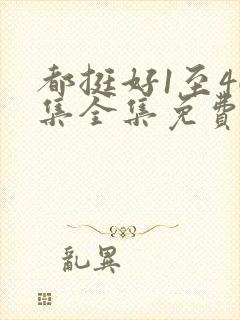 都挺好1至4
集全集免費
亂異